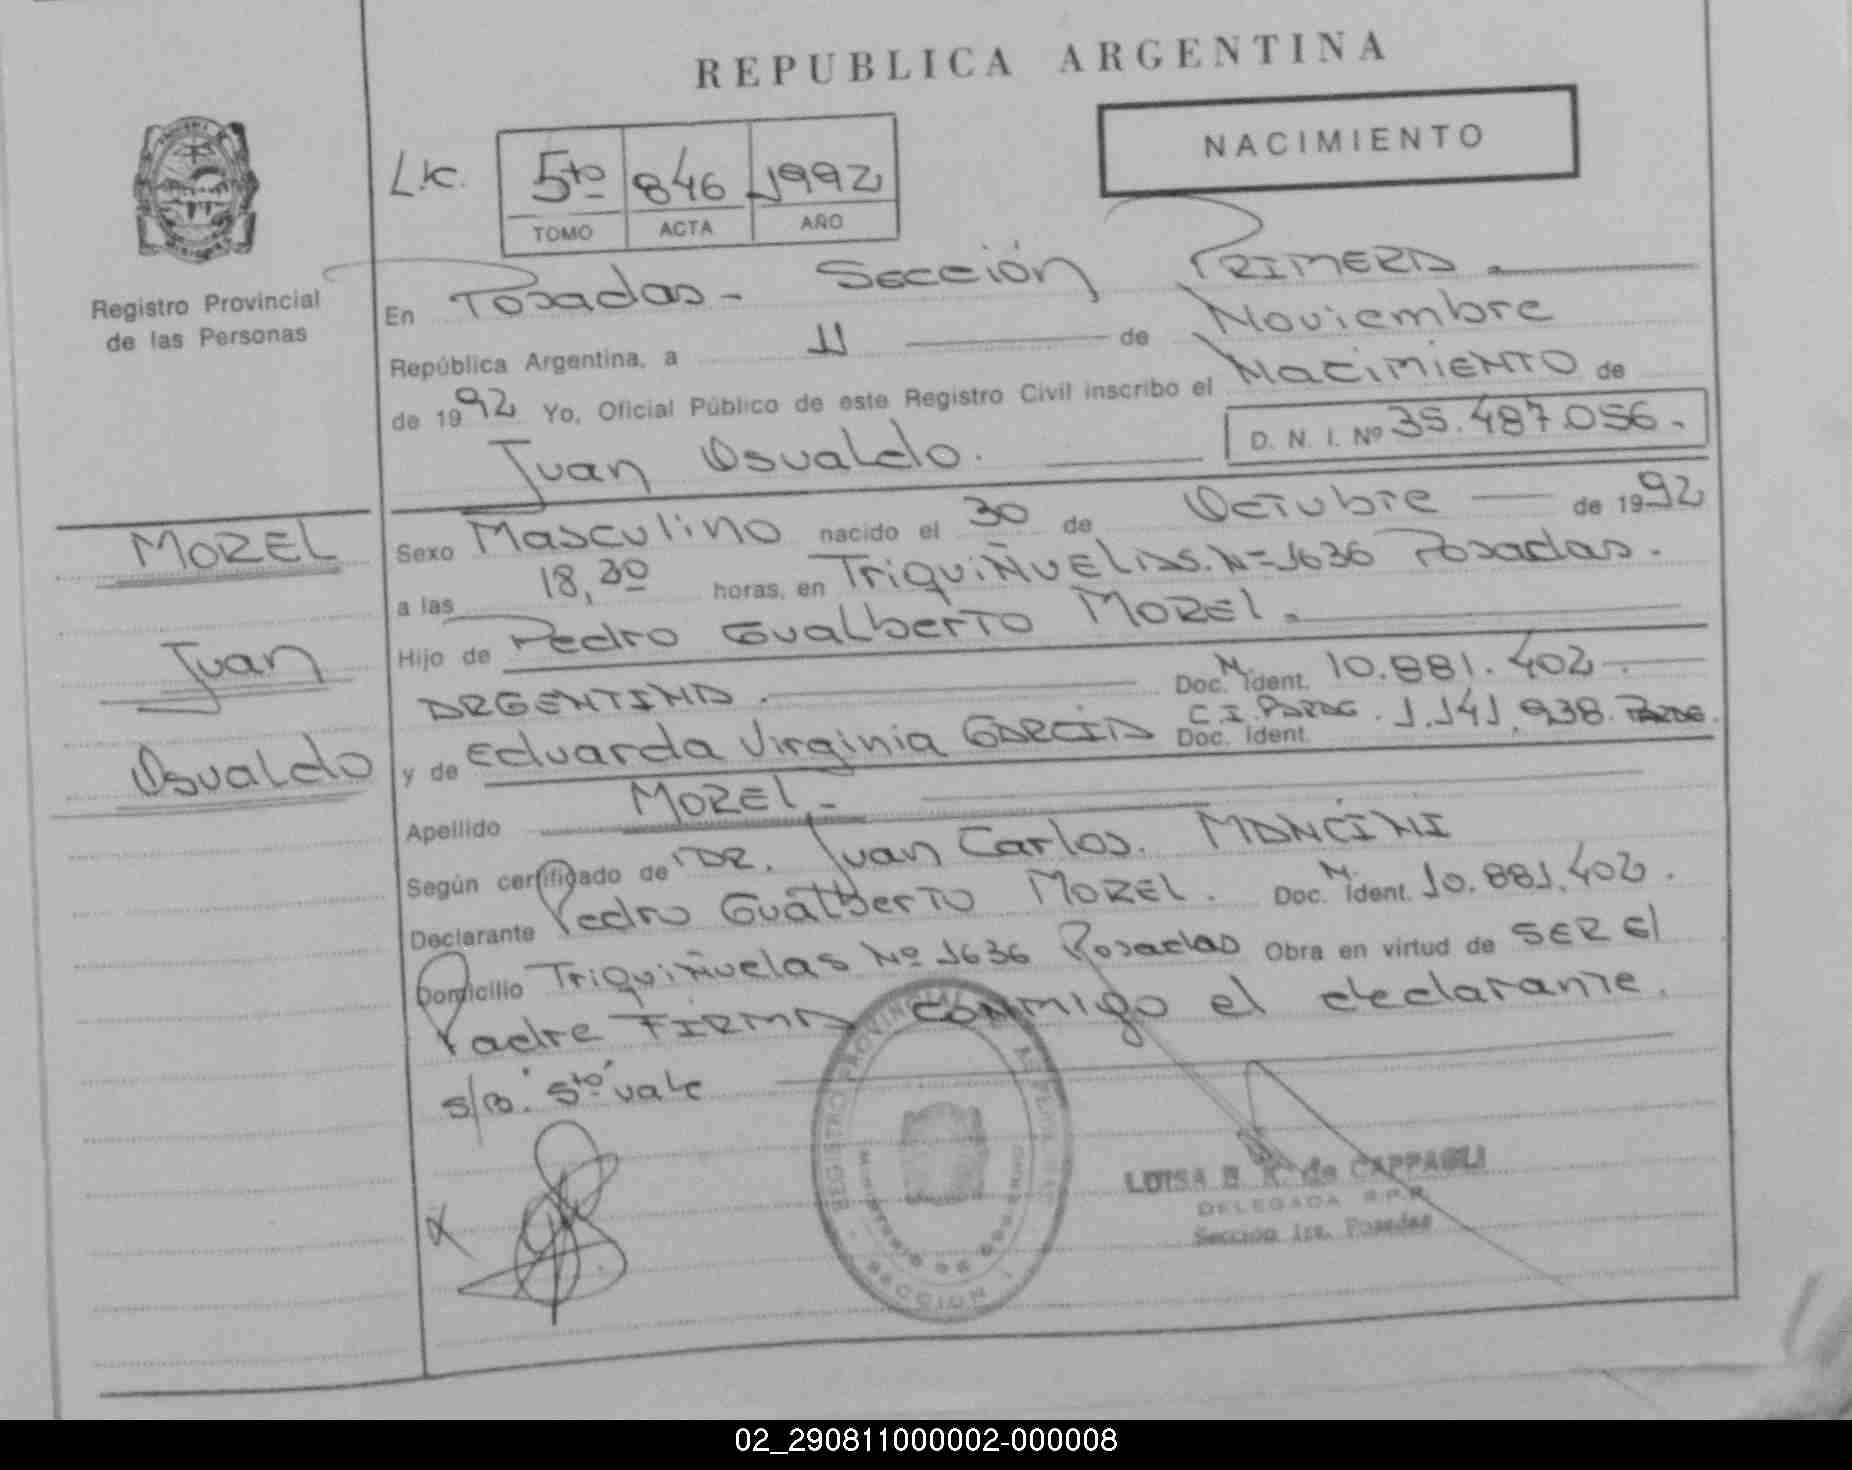 REPUBLICA ARGENTINA
NACIMIENTO
5to 846 1992
TOMO ACTA AÑO
Registro Provincial
de las Personas
En Posadas - Sección PRIMERA.
República Argentina, a 11 de Noviembre
de 1992 Yo, Oficial Público de este Registro Civil inscribo el NaciMiENTO de
Juan Osvaldo. D. N. I. Nº 35.487.056.
MOREL
Juan
Osvaldo
Sexo Masculino nacido el 30 de Octubre de 1992
a las 18,30 horas, en TriquiÑUELAS. Nº 1636 Posadas.
Hijo de Pedro Gualberto MOREL.
ARGENTINA. Doc. M. Ident. 10.881.402.
C.I. PARAG. 1.141.938. PARAG.
y de Eduarda Virginia GARCIA Doc. Ident.
Apellido MOREL -
Según certificado de DR. Juan Carlos. MANCINI
Declarante Pedro Gualberto MOREL. Doc. M. Ident. 10.881.402.
Domicilio Triquiñuelas Nº 1636 Posadas Obra en virtud de SER El
Padre FIRMA CONMigo el declarante.
s/B. "5to" vale
REGISTRO PROVINCIAL DE LAS PERSONAS
MINISTERIO DE GOBIERNO
MISIONES
LUISA B. K. de CAPPAGLI
DELEGADA R.P.P.
Sección 1ra. Posadas
02_290811000002-000008